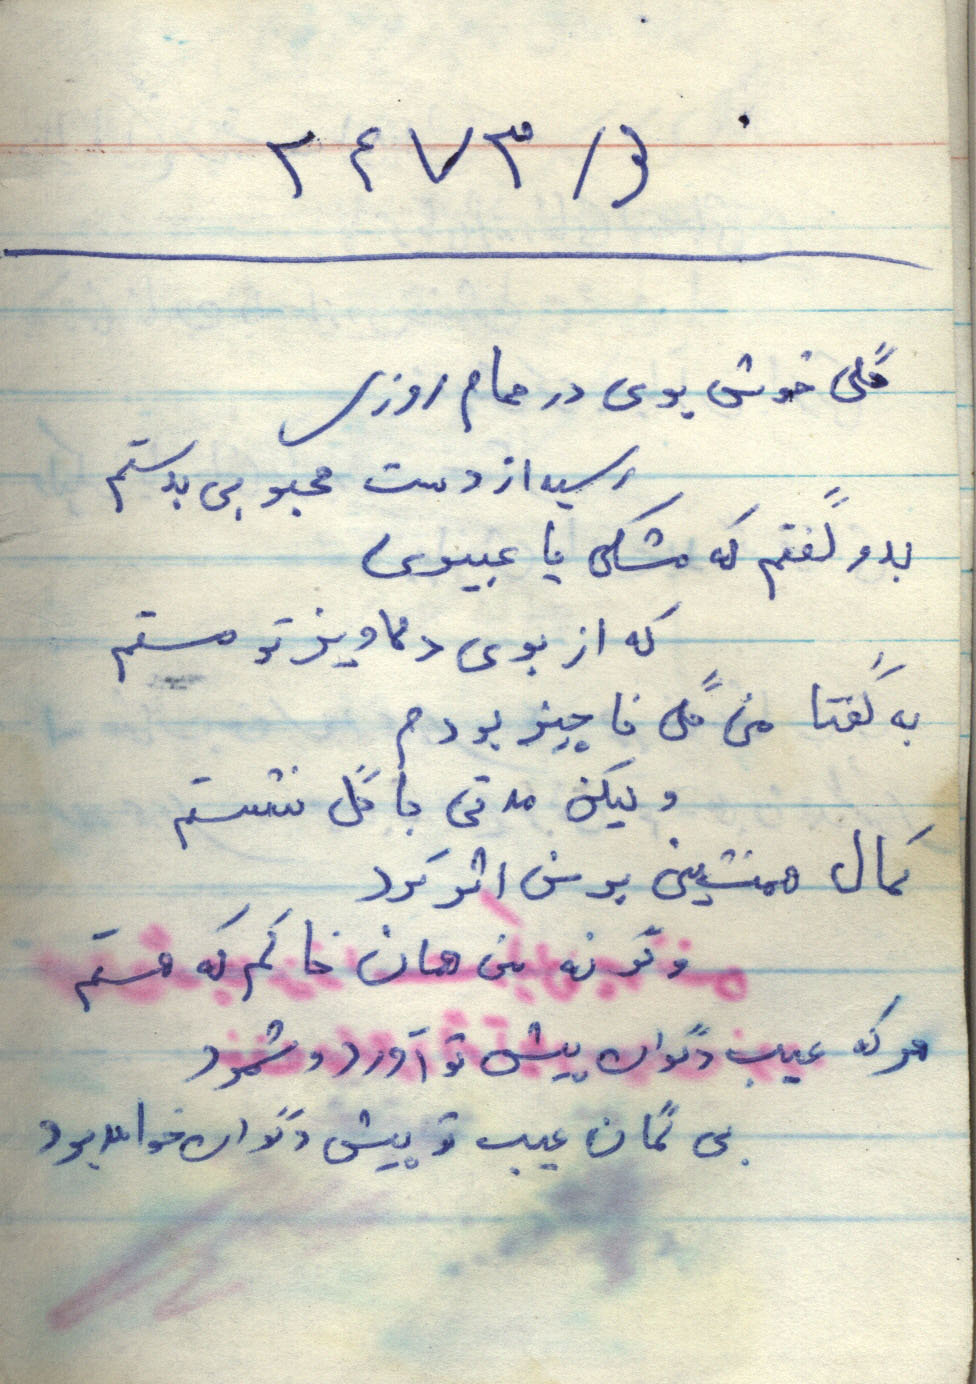 ۲۴۷۳/و
گلی خوش بوی در حمام روزی
رسید از دست محبوبی بدستم
بدو گفتم که مشکی یا عبیری
که از بوی دلاویز تو مستم
به گفتا من گلی ناچیز بودم
ولیکن مدتی با گل نشستم
کمال همنشین برمن اثر کرد
وگرنه من همان خاکم که هستم
هر که عیب دگران پیش تو آورد و شمرد
بی گمان عیب تو پیش دگران خواهد برد